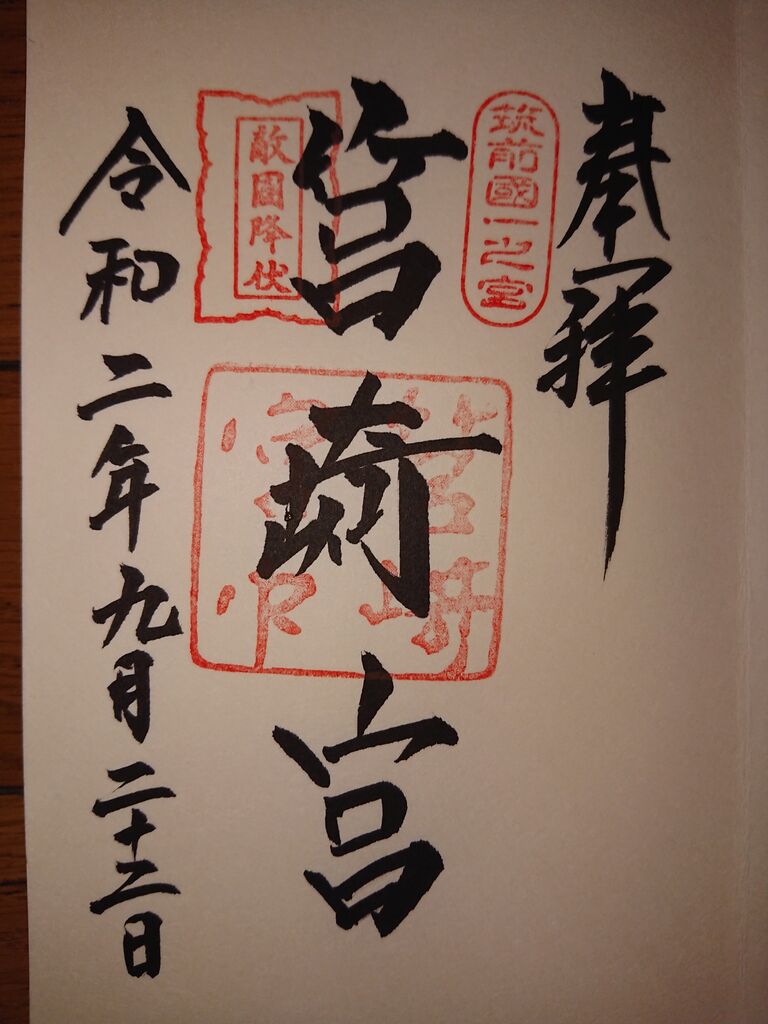 奉拝
筑前國一之宮
筥崎宮
敵國降伏
令和二年九月二十二日